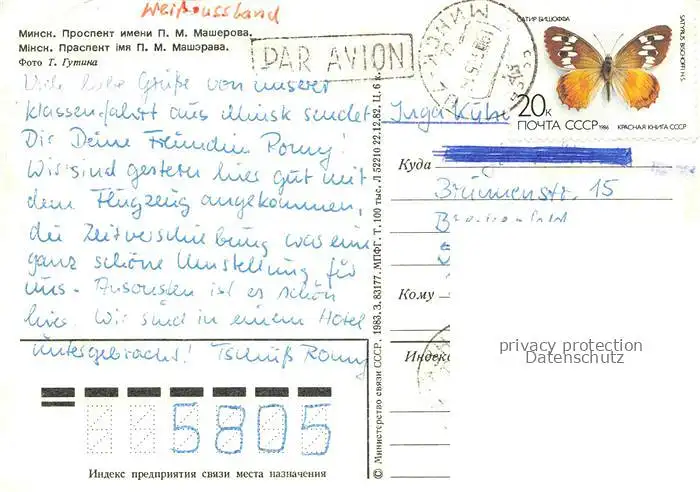 Weißrussland
Минск. Проспект имени П. М. Машерова.
Мінск. Праспект імя П. М. Машэрава.
Фото Т. Гутина
PAR AVION
МИНСК
САТИР БИШОФФА
SATYRUS BISCHOFFI H.S.
20к
ПОЧТА СССР 1986 КРАСНАЯ КНИГА СССР
Viele liebe Grüße von unserer
Klassenfahrt aus Minsk sendet
Dir Deine Freundin Romy!
Wir sind gestern hier gut mit
dem Flugzeug angekommen,
die Zeitverschiebung war eine
ganz schöne Umstellung für
uns. Ansonsten ist es schön
hier. Wir sind in einem Hotel
untergebracht! Tschüß Romy
Куда
Brunnenstr. 15
Кому
Индекс
privacy protection
Datenschutz
5805
Индекс предприятия связи места назначения
© Министерство связи СССР. 1983. З. 83177. МПФГ. Т. 100 тыс. Л 52210 22.12.82. Ц. 6 к.